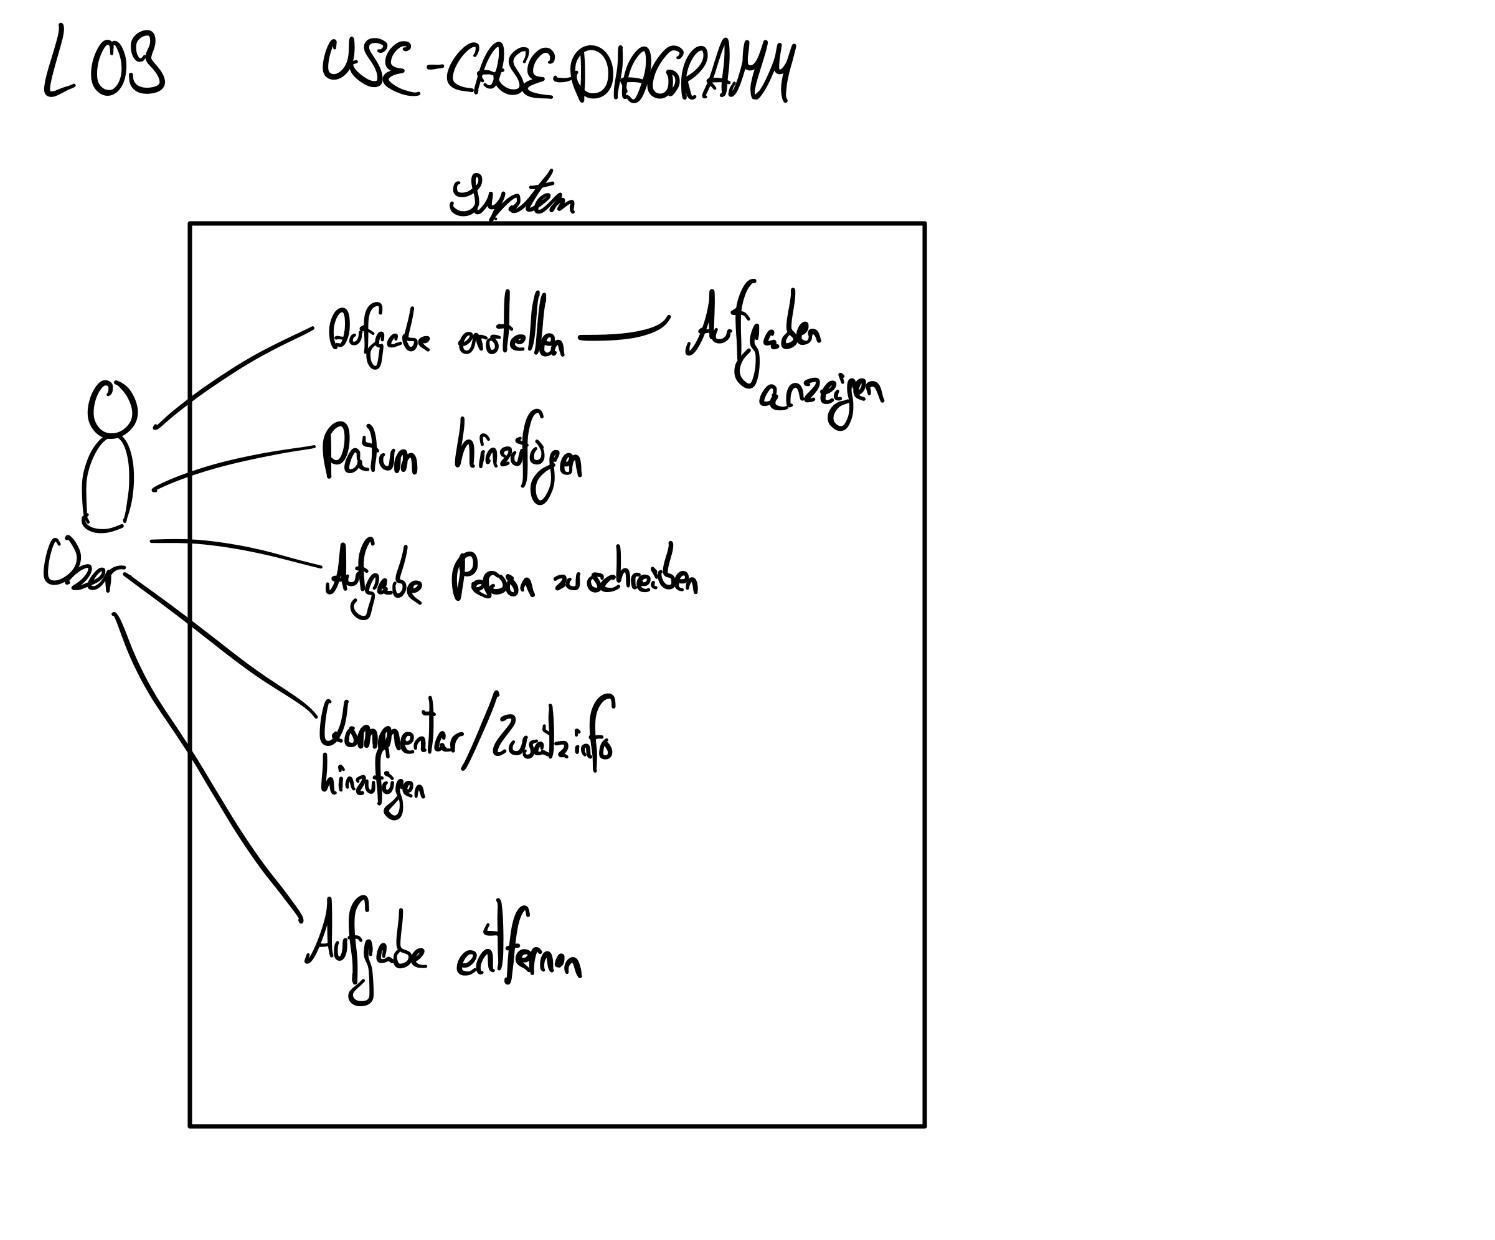 L09 USE-CASE-DIAGRAMM
System
Aufgabe erstellen
Aufgaben
anzeigen
Datum hinzufügen
User
Aufgabe Person zuschreiben
Kommentar/Zusatzinfo
hinzufügen
Aufgabe entfernen